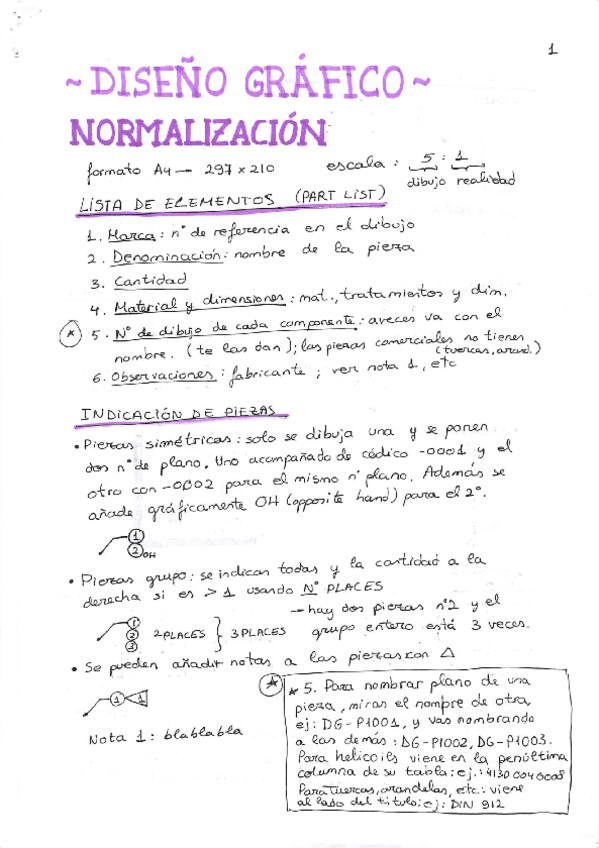 1
~DISEÑO GRÁFICO~
NORMALIZACIÓN
formato A4 — 297 x 210 escala : 5 : 1
dibujo realidad
LISTA DE ELEMENTOS (PART LIST)
1. Marca : nº de referencia en el dibujo
2. Denominación : nombre de la pieza
3. Cantidad
4. Material y dimensiones : mat., tratamientos y dim.
* 5. Nº de dibujo de cada componente : aveces va con el
nombre. (te las dan); las piezas comerciales no tienes
(tuercas, arand.)
6. Observaciones : fabricante ; ver nota 1, etc
INDICACIÓN DE PIEZAS
• Piezas simétricas : solo se dibuja una y se ponen
dos nº de plano. Uno acompañado de códico -0001 y el
otro con -0002 para el mismo nº plano. Además se
añade gráficamente OH (opposite hand) para el 2º.
1
2 OH
• Piezas grupo : se indican todas y la cantidad a la
derecha si es > 1 usando Nº PLACES
1
2 2 PLACES } 3 PLACES
3
→ hay dos piezas nº2 y el
grupo entero está 3 veces.
• Se pueden añadir notas a las piezas con Δ
1 1
Nota 1 : blablabla
* * 5. Para nombrar plano de una
pieza, miras el nombre de otra,
ej : DG-P1001, y vas nombrando
a las demás : DG-P1002, DG-P1003.
Para helicoils viene en la penúltima
columna de su tabla : ej. : 4130 004 0008
Para tuercas, arandelas, etc. : viene
al lado del titulo : ej : DIN 912